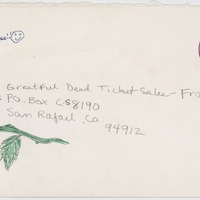 Greatful Dead Ticket Sales - Fro
P.O. Box CS8190
San Rafael, Ca
94912